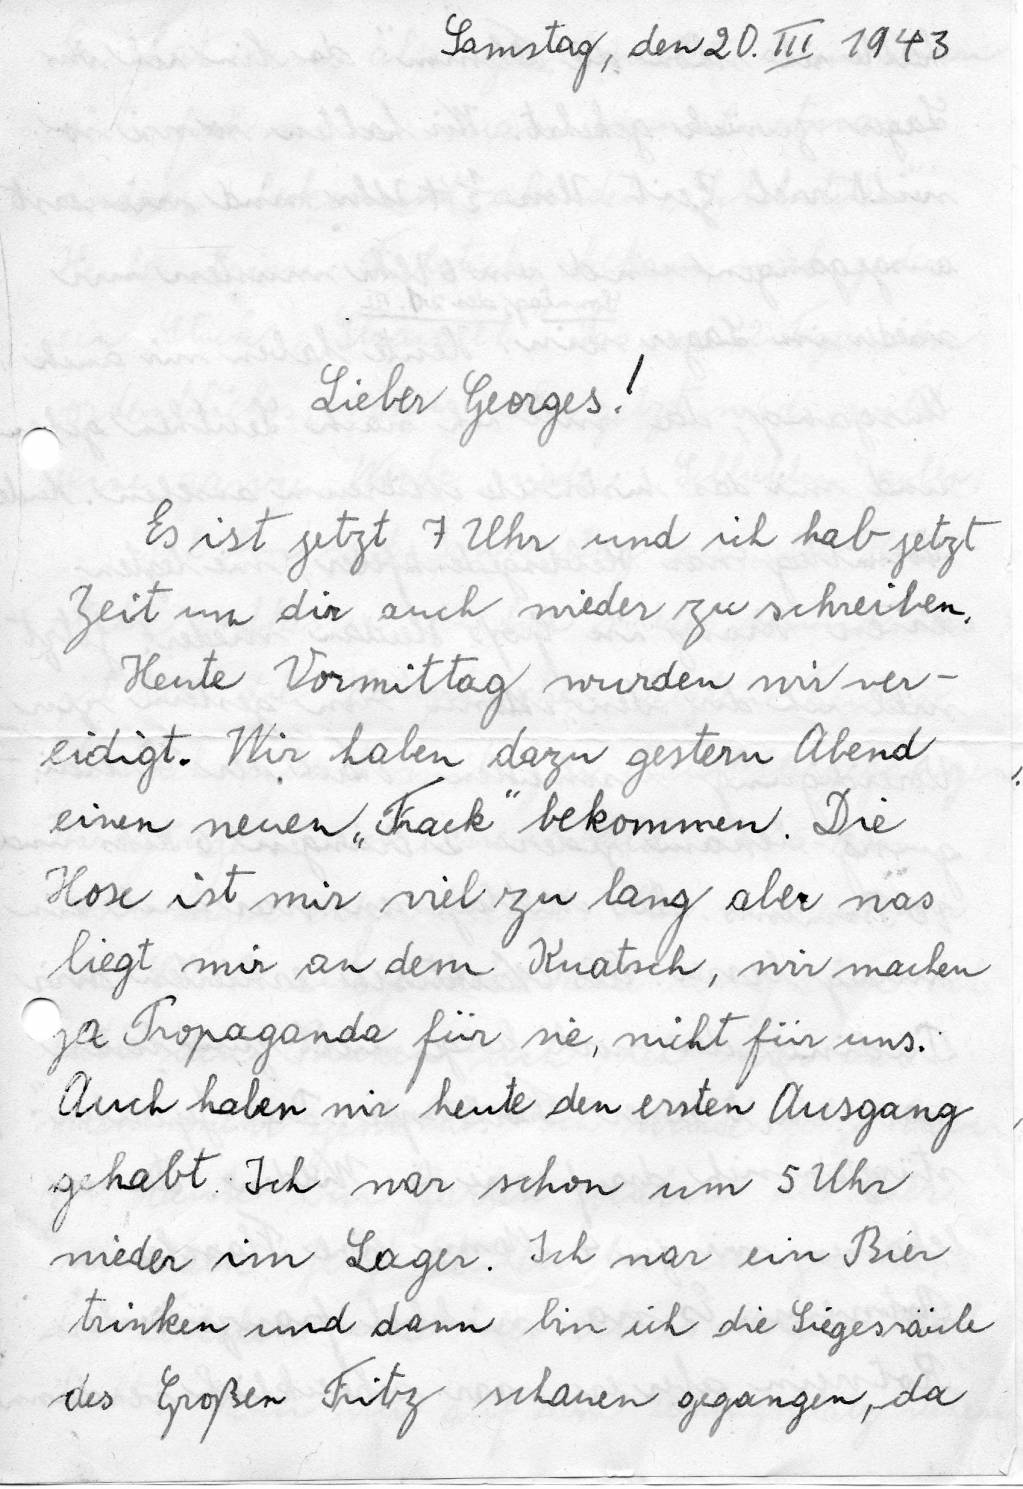 Samstag, den 20. III 1943
Lieber Georges!
Es ist jetzt 7 Uhr und ich hab jetzt
Zeit um dir auch wieder zu schreiben.
Heute Vormittag wurden wir ver-
eidigt. Wir haben dazu gestern Abend
einen neuen „Frack“ bekommen. Die
Hose ist mir viel zu lang aber was
liegt mir an dem Knatsch, wir machen
ja Propaganda für sie, nicht für uns.
Auch haben wir heute den ersten Ausgang
gehabt. Ich war schon um 5 Uhr
wieder im Lager. Ich war ein Bier
trinken und dann bin ich die Siegessäule
des Großen Fritz schauen gegangen, da